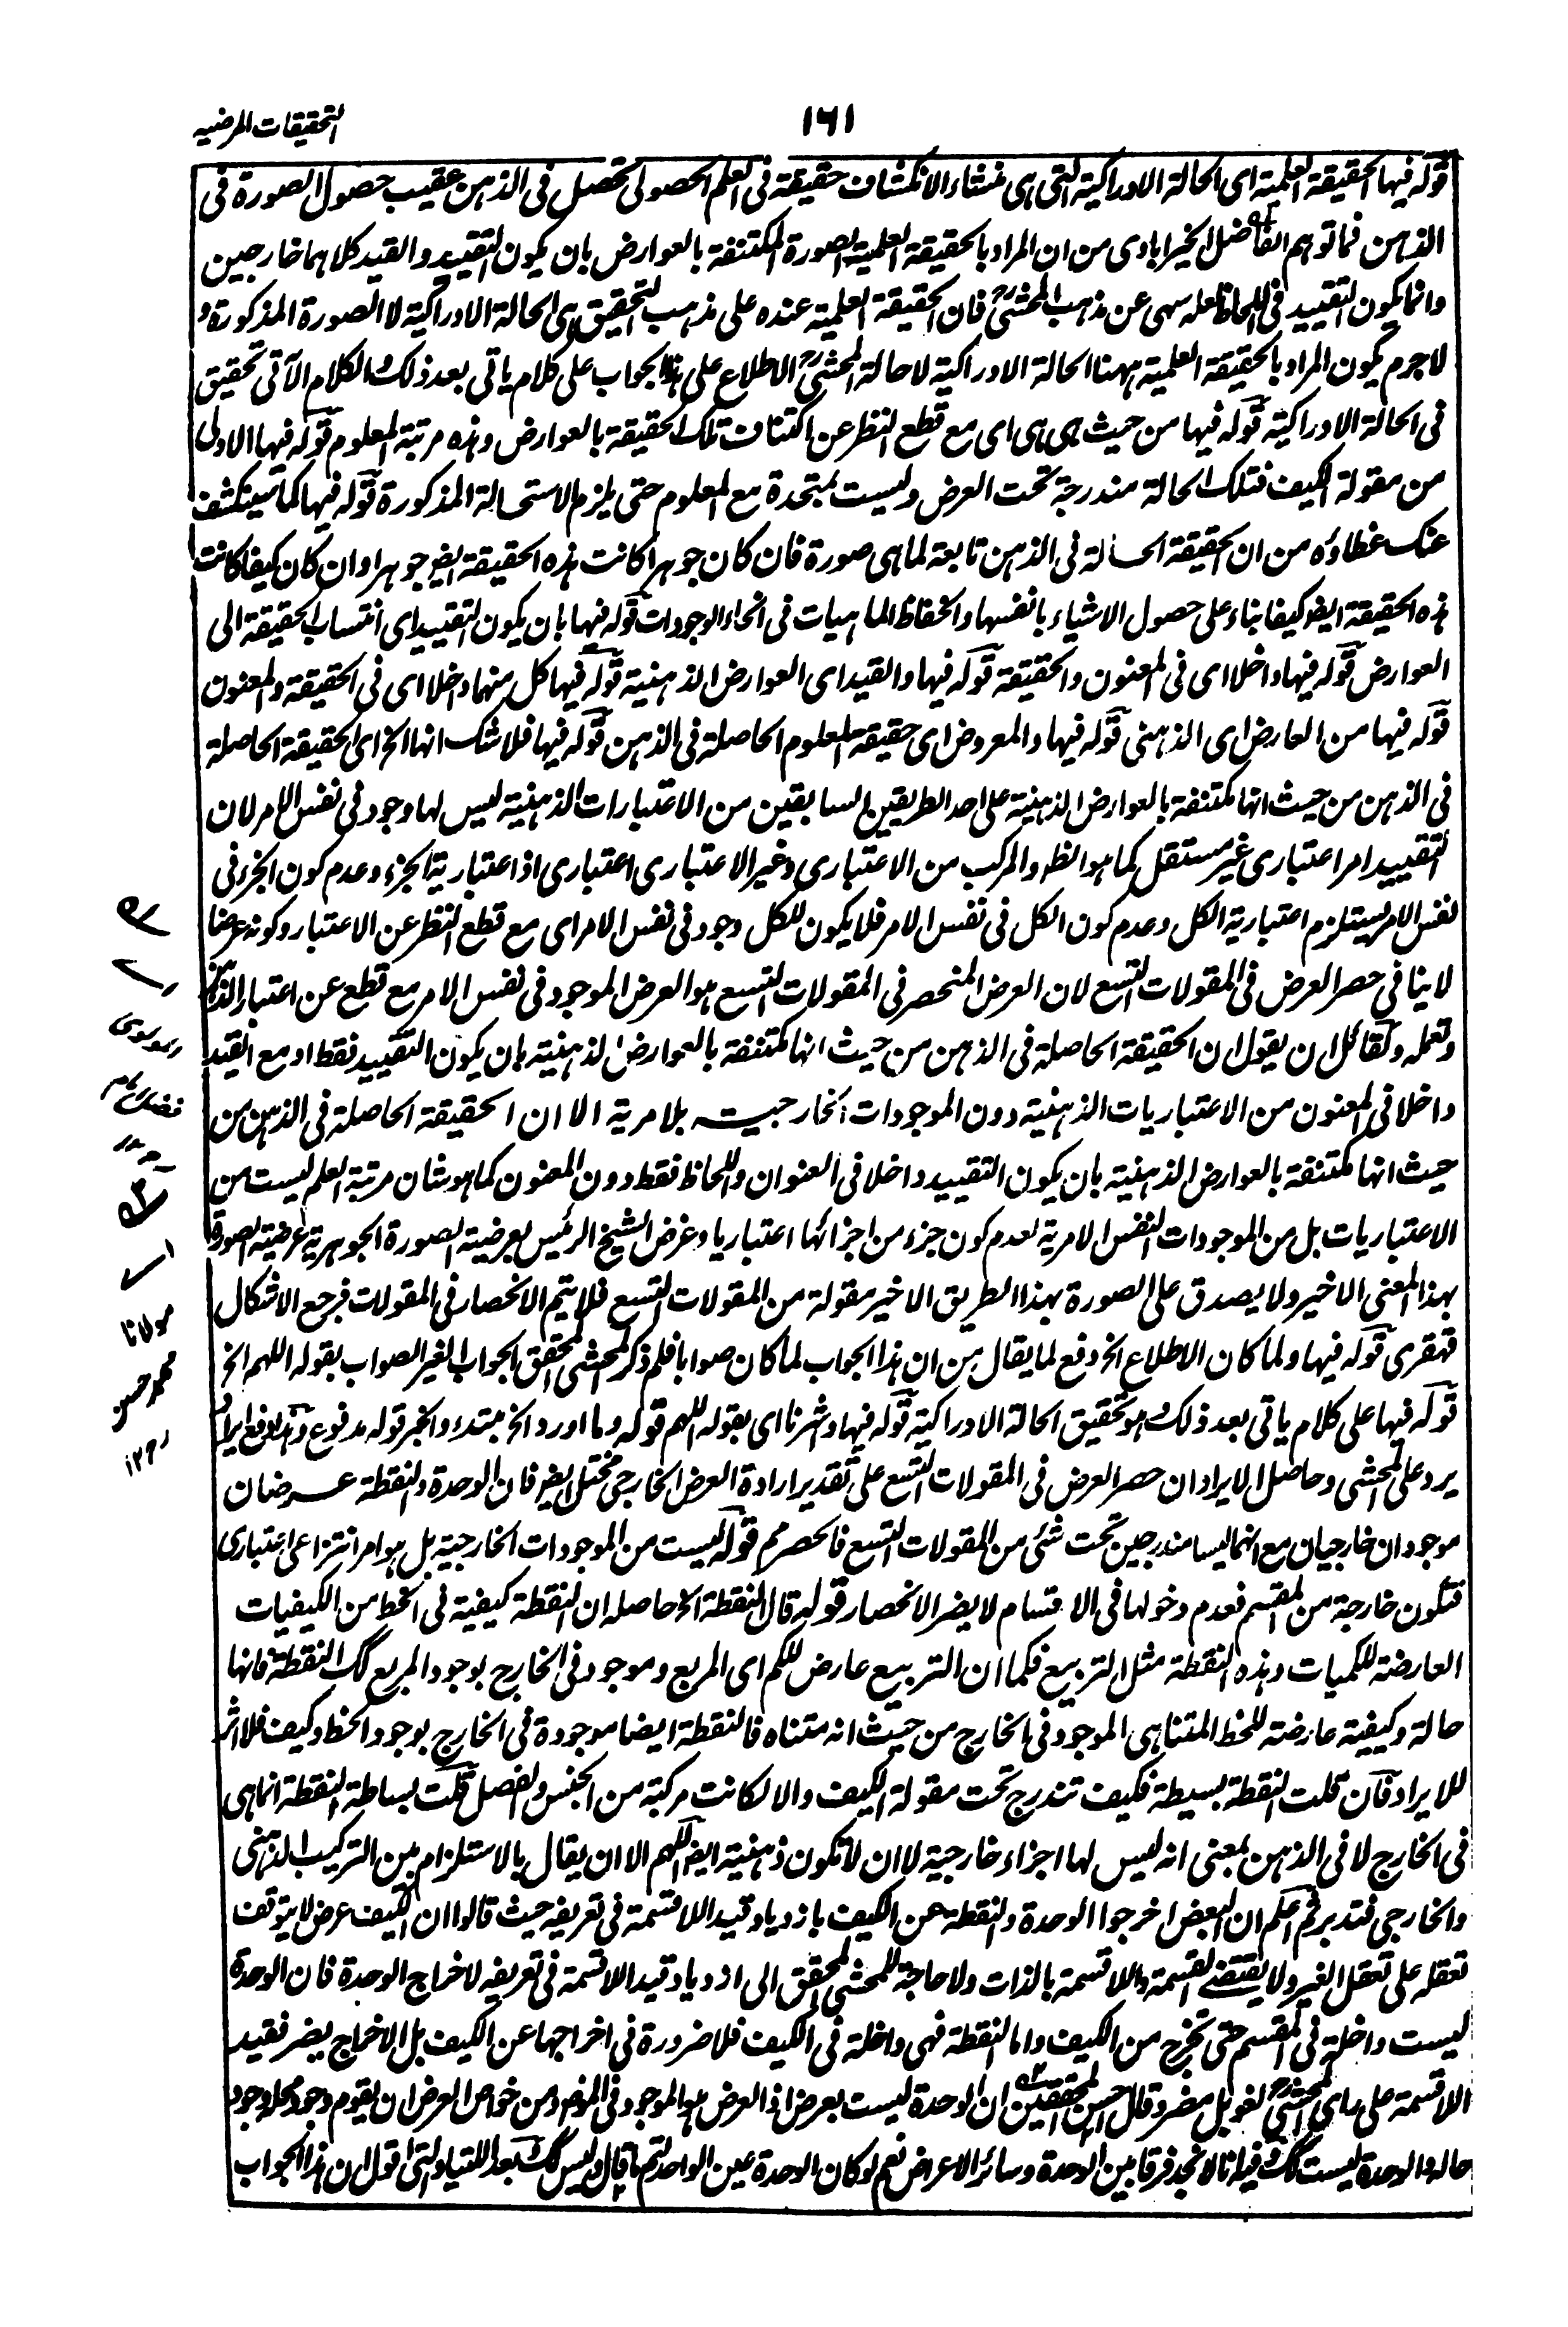 التحقيقات المرضیه
۱۶۱
قوله فيها الحقيقة العلمية اى الحالة الادراكية التى هى منشاء الانكشاف حقيقة فى العلم الحصولى تحصل فى الذهن عقيب حصول الصورة فى
الذهن فما توهم الفاضل الخيرابادى من ان المراد بالحقيقة العلمية الصورة المكتنفة بالعوارض بان يكون التقييد والقيد كلاهما خارجين
وانما يكون التقييد فى اللحاظ لعله سهى عن مذهب المحشى رح فان الحقيقة العلمية عنده على مذهب التحقيق هى الحالة الادراكية لا الصورة المذكورة و
لاجرم يكون المراد بالحقيقة العلمية ههنا الحالة الادراكية لاحالة المحشى رح الاطلاع على هذا الجواب على كلام ياتى بعد ذلك والكلام الآتى تحقيق
فى الحالة الادراكية قوله فيها من حيث هى هى اى مع قطع النظر عن اكتناف تلك الحقيقة بالعوارض وهذه مرتبة المعلوم قوله فيها الاولى
من مقولة الكيف فتلك الحالة مندرجة تحت العرض وليست بمتحدة مع المعلوم حتى يلزم الاستحالة المذكورة قوله فيها كما سينكشف
عنك غطاؤه من ان الحقيقة الحاله فى الذهن تابعة لما هى صورة فان كان جوهرا كانت هذه الحقيقة ايض جوهرا وان كان كيفا كانت
هذه الحقيقة ايض كيفا بناء على حصول الاشياء بانفسها وانحفاظ الماهيات فى انحاء الوجودات قوله فيها بان يكون التقييد اى انتساب الحقيقة الى
العوارض قوله فيها داخلا اى فى المعنون والحقيقة قوله فيها والقيد اى العوارض الذهنية قوله فيها كل منهما داخلا اى فى الحقيقة والمعنون
قوله فيها من العارض اى الذهنى قوله فيها والمعروض اى حقيقة المعلوم الحاصلة فى الذهن قوله فيها فلا شك انها الخ اى الحقيقة الحاصلة
فى الذهن من حيث انها مكتنفة بالعوارض الذهنية على احد الطريقين السابقين من الاعتبارات الذهنية ليس لها وجود فى نفس الامر لان
التقييد امر اعتبارى غير مستقل كما هو الظ والمركب من الاعتبارى وغير الاعتبارى اعتبارى اذ اعتبارية الجزء وعدم كون الجزء فى
نفس الامر يستلزم اعتبارية الكل وعدم كون الكل فى نفس الامر فلا يكون للكل وجود فى نفس الامر اى مع قطع النظر عن الاعتبار وكونه عرضا
لا ينافى حصر العرض فى المقولات التسع لان العرض المنحصر فى المقولات التسع هو العرض الموجود فى نفس الامر مع قطع عن اعتبار الذهن
وتعمله ولقائل ان يقول ان الحقيقة الحاصلة فى الذهن من حيث انها مكتنفة بالعوارض الذهنية بان يكون التقييد فقط او مع القيد
داخلا فى المعنون من الاعتباريات الذهنية دون الموجودات الخارجيت بلا مرية الا ان الحقيقة الحاصلة فى الذهن من
حيث انها مكتنفة بالعوارض الذهنية بان يكون التقييد داخلا فى العنوان واللحاظ فقط دون المعنون كما هو شان مرتبة العلم ليست من
الاعتباريات بل من الموجودات النفس الامرية لعدم كون جزء من اجزائها اعتباريا وغرض الشيخ الرئيس بعرضية الصورة الجوهرية عرضية الصورة
بهذا المعنى الاخير ولا يصدق على الصورة بهذا الطريق الاخير مقولة من المقولات التسع فلا يتم الانحصار فى المقولات فرجع الاشكال
قهقرى قوله فيها ولما كان الاطلاع الخ دفع لما يقال من ان هذا الجواب لما كان صوابا فلم ذكر المحشى المحقق الجواب الغير الصواب بقوله اللهم الخ
قوله فيها على كلام ياتى بعد ذلك هو تحقيق الحالة الادراكية قوله فيها وشرنا اى بقوله اللهم قوله وما اورد الخ مبتدء والخبر قوله مدفوع وهذا دفع ايراد
يرد على المحشى وحاصل الايراد ان حصر العرض فى المقولات التسع على تقدير ارادة العرض الخارجى مختل ايض فان الوحدة والنقطة عرضان
موجودان خارجيان مع انهما ليسا مندرجين تحت شئى من المقولات التسع فالحصر مم قوله ليست من الموجودات الخارجية بل هو امر انتزاعى اعتبارى
فتكون خارجة من المقسم فعدم دخولها فى الاقسام لا يضر الانحصار قوله قال النقطة الخ حاصله ان النقطة كيفية فى الخط من الكيفيات
العارضة للكميات وهذه النقطة مثل التربيع فكما ان التربيع عارض للكم اى المربع وموجود فى الخارج بوجود المربع كك النقطة فانها
حالة وكيفية عارضة للخط المتناهى الموجود فى الخارج من حيث انه متناه فالنقطة ايضا موجودة فى الخارج بوجود الخط وكيف فلا اثر
للايراد فان قلت النقطة بسيطة فكيف تندرج تحت مقولة الكيف والا لكانت مركبة من الجنس والفصل قلت بساطة النقطة انما هى
فى الخارج لا فى الذهن بمعنى انه ليس لها اجزاء خارجية لا ان لا تكون ذهنية ايض اللهم الا ان يقال بالاستلزام بين التركيب الذهنى
والخارجى فتدبر ثم اعلم ان البعض اخرجوا الوحدة والنقطة عن الكيف بازدياد قيد اللاقسمة فى تعريفه حيث قالوا ان الكيف عرض لا يتوقف
تعقله على تعقل الغير ولا يقتضى القسمة واللاقسمة بالذات ولا حاجة للمحشى المحقق الى ازدياد قيد اللاقسمة فى تعريفه لاخراج الوحدة فان الوحدة
ليست داخلة فى المقسم حتى تخرج من الكيف واما النقطة فهى داخلة فى الكيف فلا ضرورة فى اخراجها عن الكيف بل الاخراج يضر فقيد
اللاقسمة على راى المحشى رح لغو بل مضر وقال احسن المحققين ان الوحدة ليست بعرض اذ العرض هو الموجود فى الموضوع ومن خواص العرض ان يقوم وجود محله وجود
حاله والوحدة ليست كك فيه انا لا نجد فرقا بين الوحدة وسائر الاعراض نعم لو كان الوحدة عين الواحد لتم ما قال وليس كك بعد اللتيا والتى اقول ان هذا الجواب
مولانا
محمد حسن